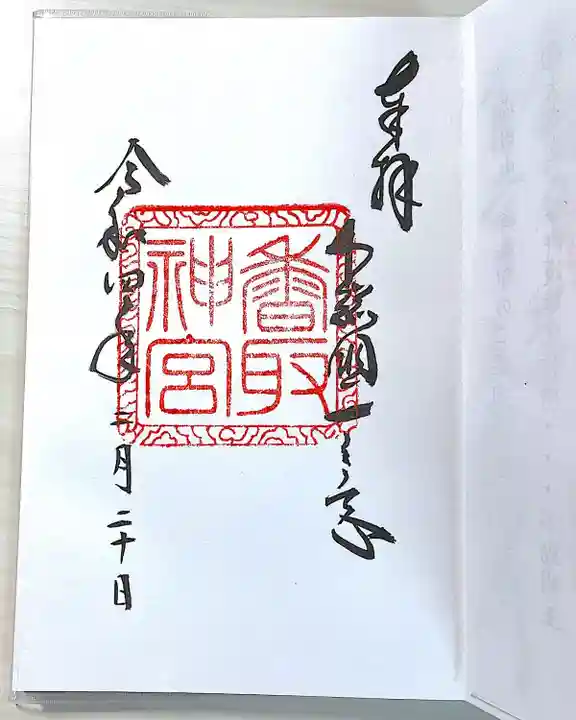 奉拝
下総國一之宮
香取
神宮
令和四年三月二十日